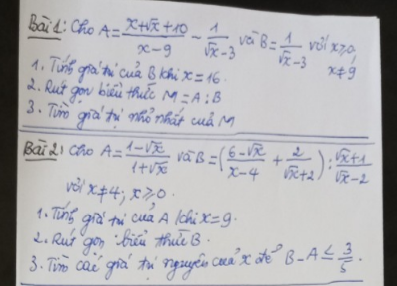 Bài 1: Cho A = (x+√x+10)/(x-9) - 1/(√x-3) và B = 1/(√x-3) với x≥0, x≠9
1. Tính giá trị của B khi x = 16.
2. Rút gọn biểu thức M = A : B
3. Tìm giá trị nhỏ nhất của M
Bài 2: Cho A = (1-√x)/(1+√x) và B = ((6-√x)/(x-4) + 2/(√x+2)) : (√x+1)/(√x-2)
với x≠4; x≥0.
1. Tính giá trị của A khi x = 9.
2. Rút gọn biểu thức B.
3. Tìm các giá trị nguyên của x để B - A ≤ 3/5.